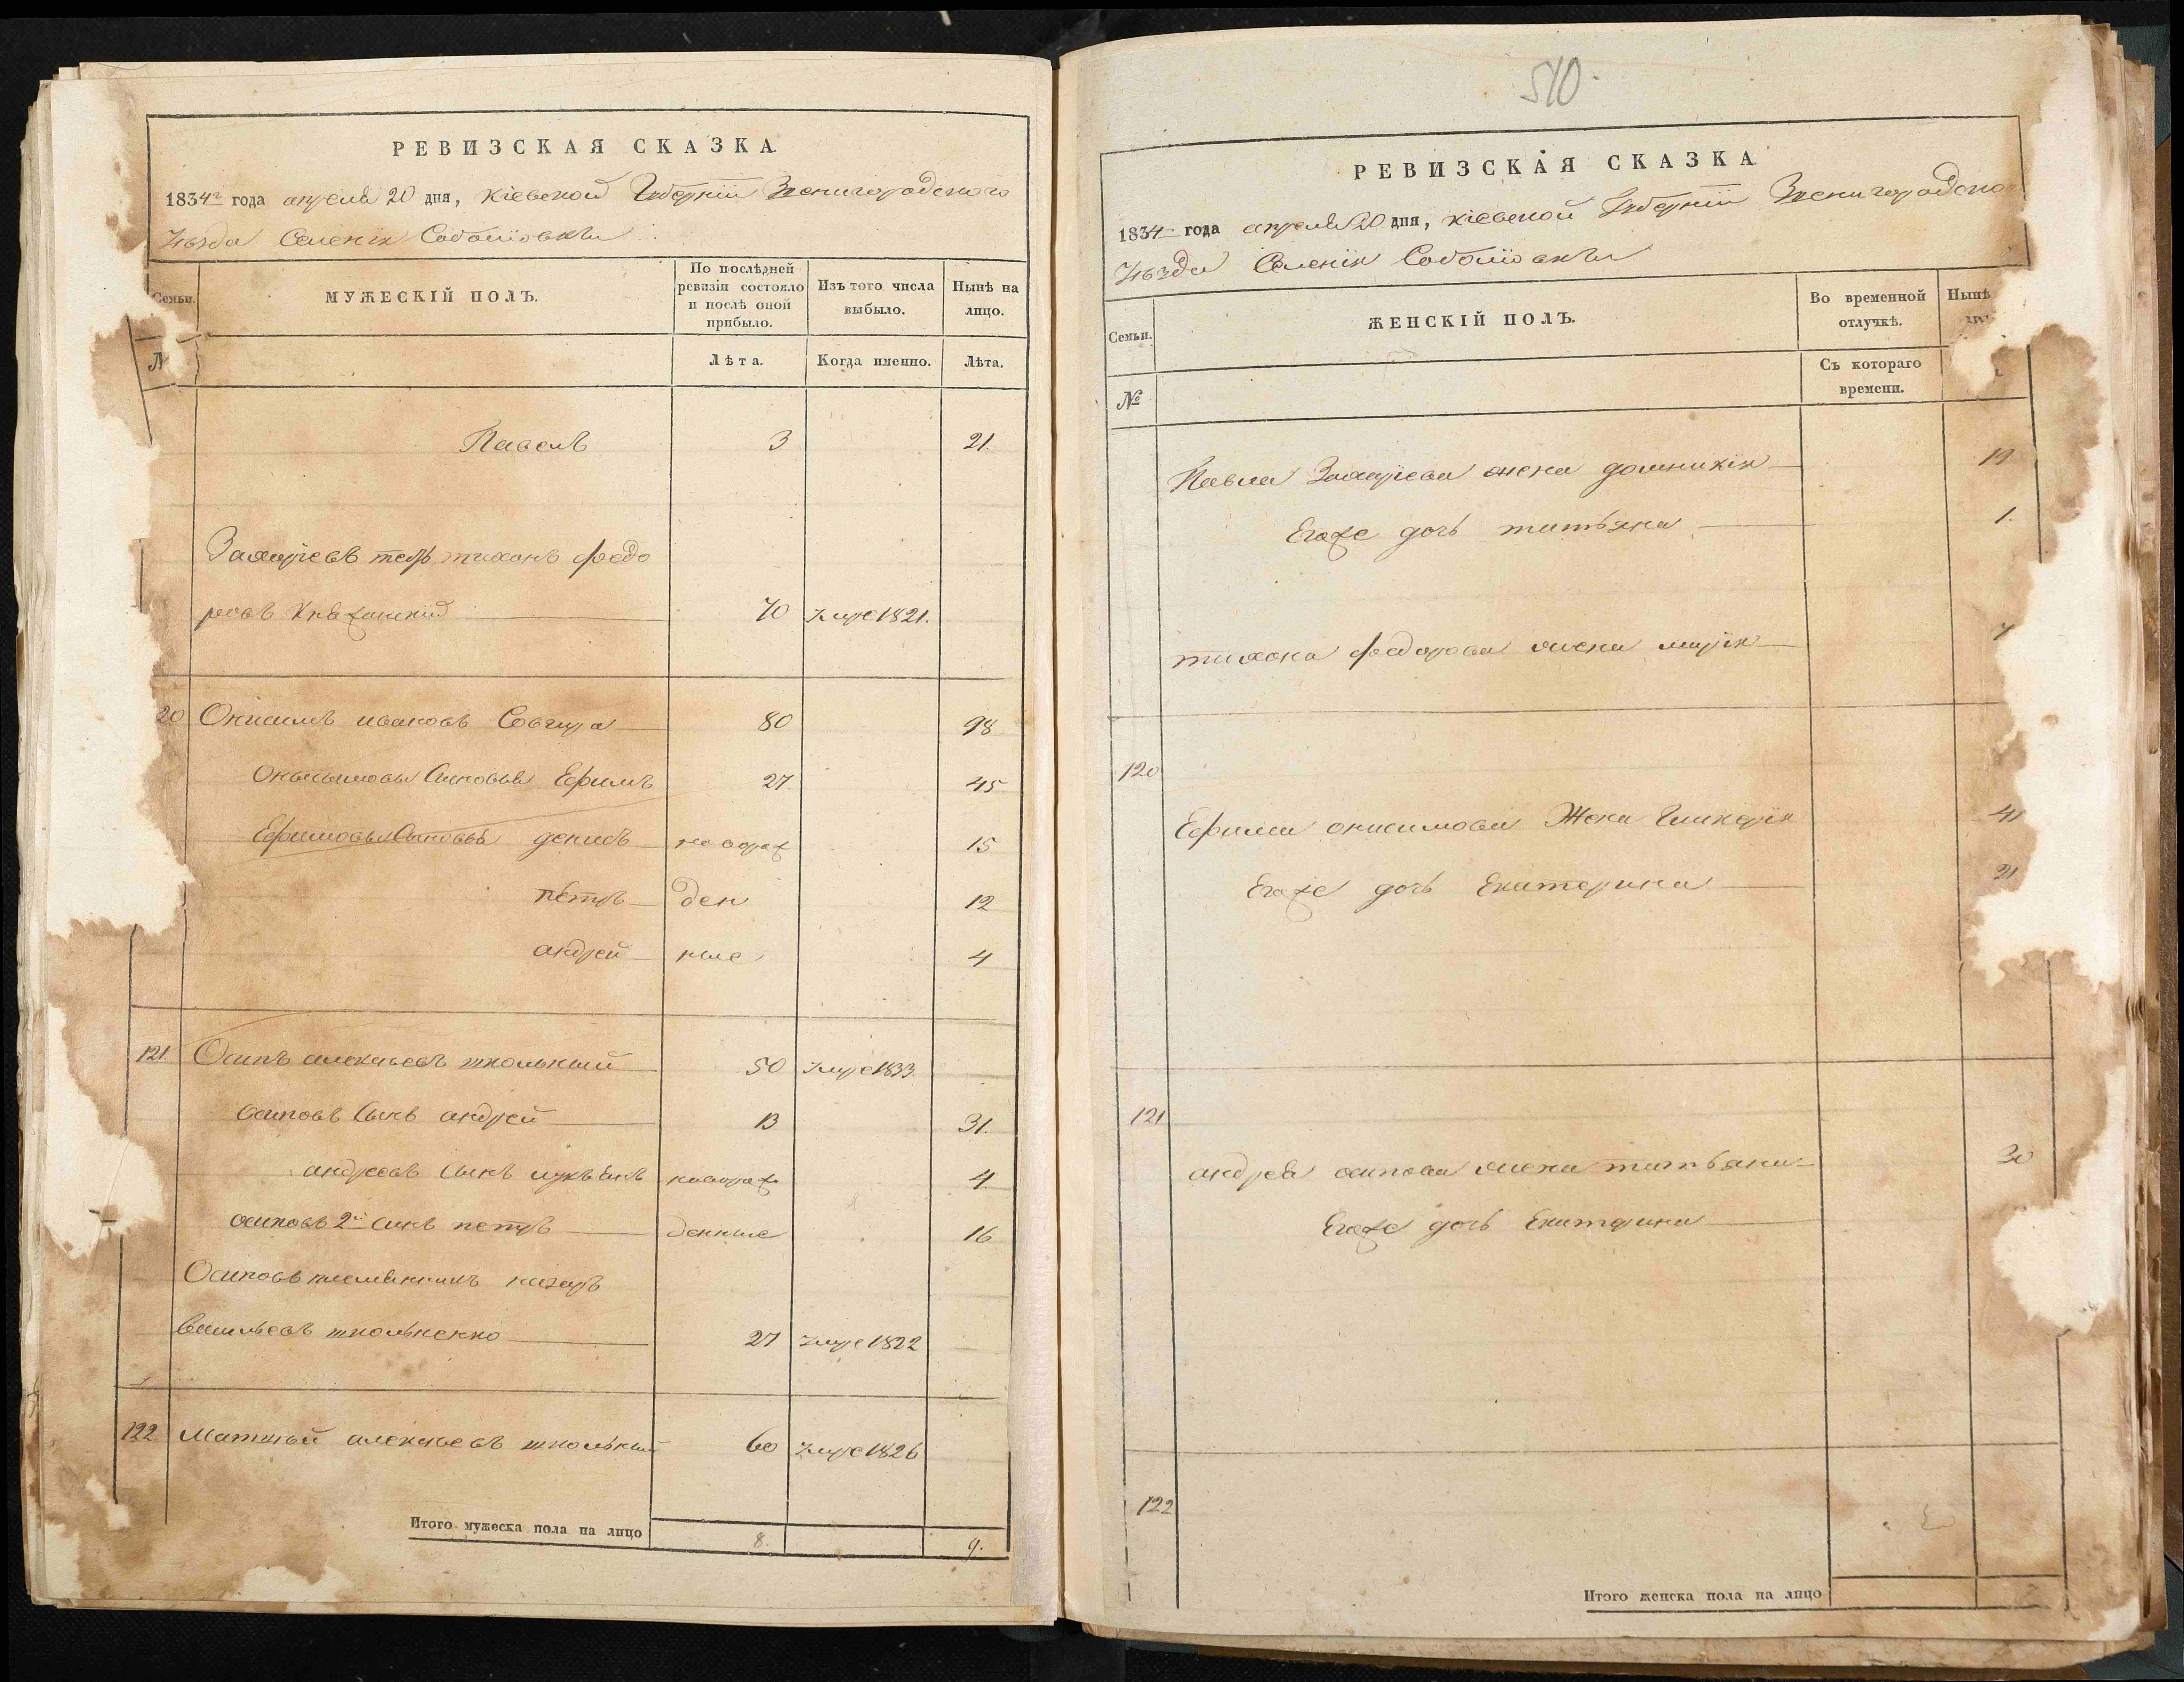 РЕВИЗСКАЯ СКАЗКА.
1834 года апреля 20 дня, Кіевской Губерніи Звенигородского
Уезда Селенія Соболіовки
Семьи.
МУЖЕСКІЙ ПОЛЪ.
По послѣдней ревизіи состояло и послѣ оной прибыло.
Изъ того числа выбыло.
Нынѣ на лицо.
№
Лѣта.
Когда именно.
Лѣта.
Павелъ 3 21.
Захарієвъ тихонъ федо
ровъ 70 Умре 1821.
20 Онисимъ ивановъ Совгира 80 98
Сыновья Ефимъ 27 45
Ефимовы Сыновья денисъ новорож 15
петръ ден 12
андрей ные 4
121. Осипъ алексѣевъ школьный 50 Умре 1833.
осиповъ Сынъ андрей 13 31.
андреевъ Сынъ новорож 4.
осиповъ 2й сынъ петръ денные 16
Осиповъ племянникъ назаръ
васильевъ школьненко 27 Умре 1822
122 Матвѣй алексѣевъ школьный 60 Умре 1826
Итого мужеска пола на лицо 8. 9.
510.
РЕВИЗСКАЯ СКАЗКА
1834 года апреля 20 дня, Кіевской Губерніи Звенигородско
Уезда Селенія Соболіовки
Семьи.
ЖЕНСКІЙ ПОЛЪ.
Во временной отлучкѣ.
Нынѣ
№
Съ котораго времени.
Павла Захарієва жена домникія 19
Егоже дочь татьяна 1.
тихона федорова жена марія 7
120
Ефима онисимова Жена Гликерія 41
Егоже дочь Екатерина 21
121
андрея осипова жена татьяна 30
Егоже дочь Екатерина
122
Итого женска пола на лицо